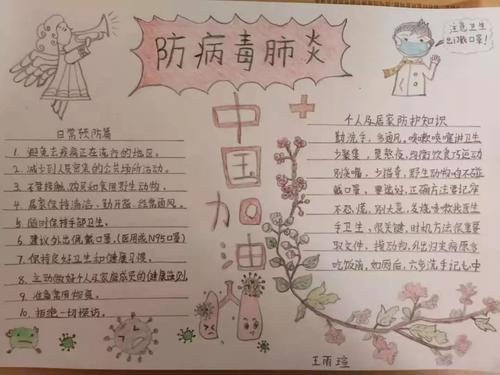 防病毒肺炎
注意卫生
出门戴口罩!
中国加油
日常预防篇
1. 避免去疾病正在流行的地区。
2. 减少到人员密集的公共场所活动。
3. 不要接触、购买和食用野生动物。
4. 居家保持清洁,勤开窗,经常通风。
5. 随时保持手部卫生。
6. 建议外出佩戴口罩(医用或N95口罩)
7. 保持良好卫生和健康习惯。
8. 主动做好个人及家庭成员的健康监测
9. 准备常用物资。
10. 拒绝一切探访。
个人及居家防护知识
勤洗手,多通风,咳嗽喷嚏讲卫生
少聚集,莫熬夜,均衡饮食巧运动
别尖嘴,少猎奇,野生动物不能碰
戴口罩,要选好,正确方法要记牢
不恐慌,别大意,发烧咳嗽找医生
手卫生,很关键,时机方法很重要
取文件,接动物,外出归来病原多
吃饭前,如厕后,六步洗手记心中
王雨瑄